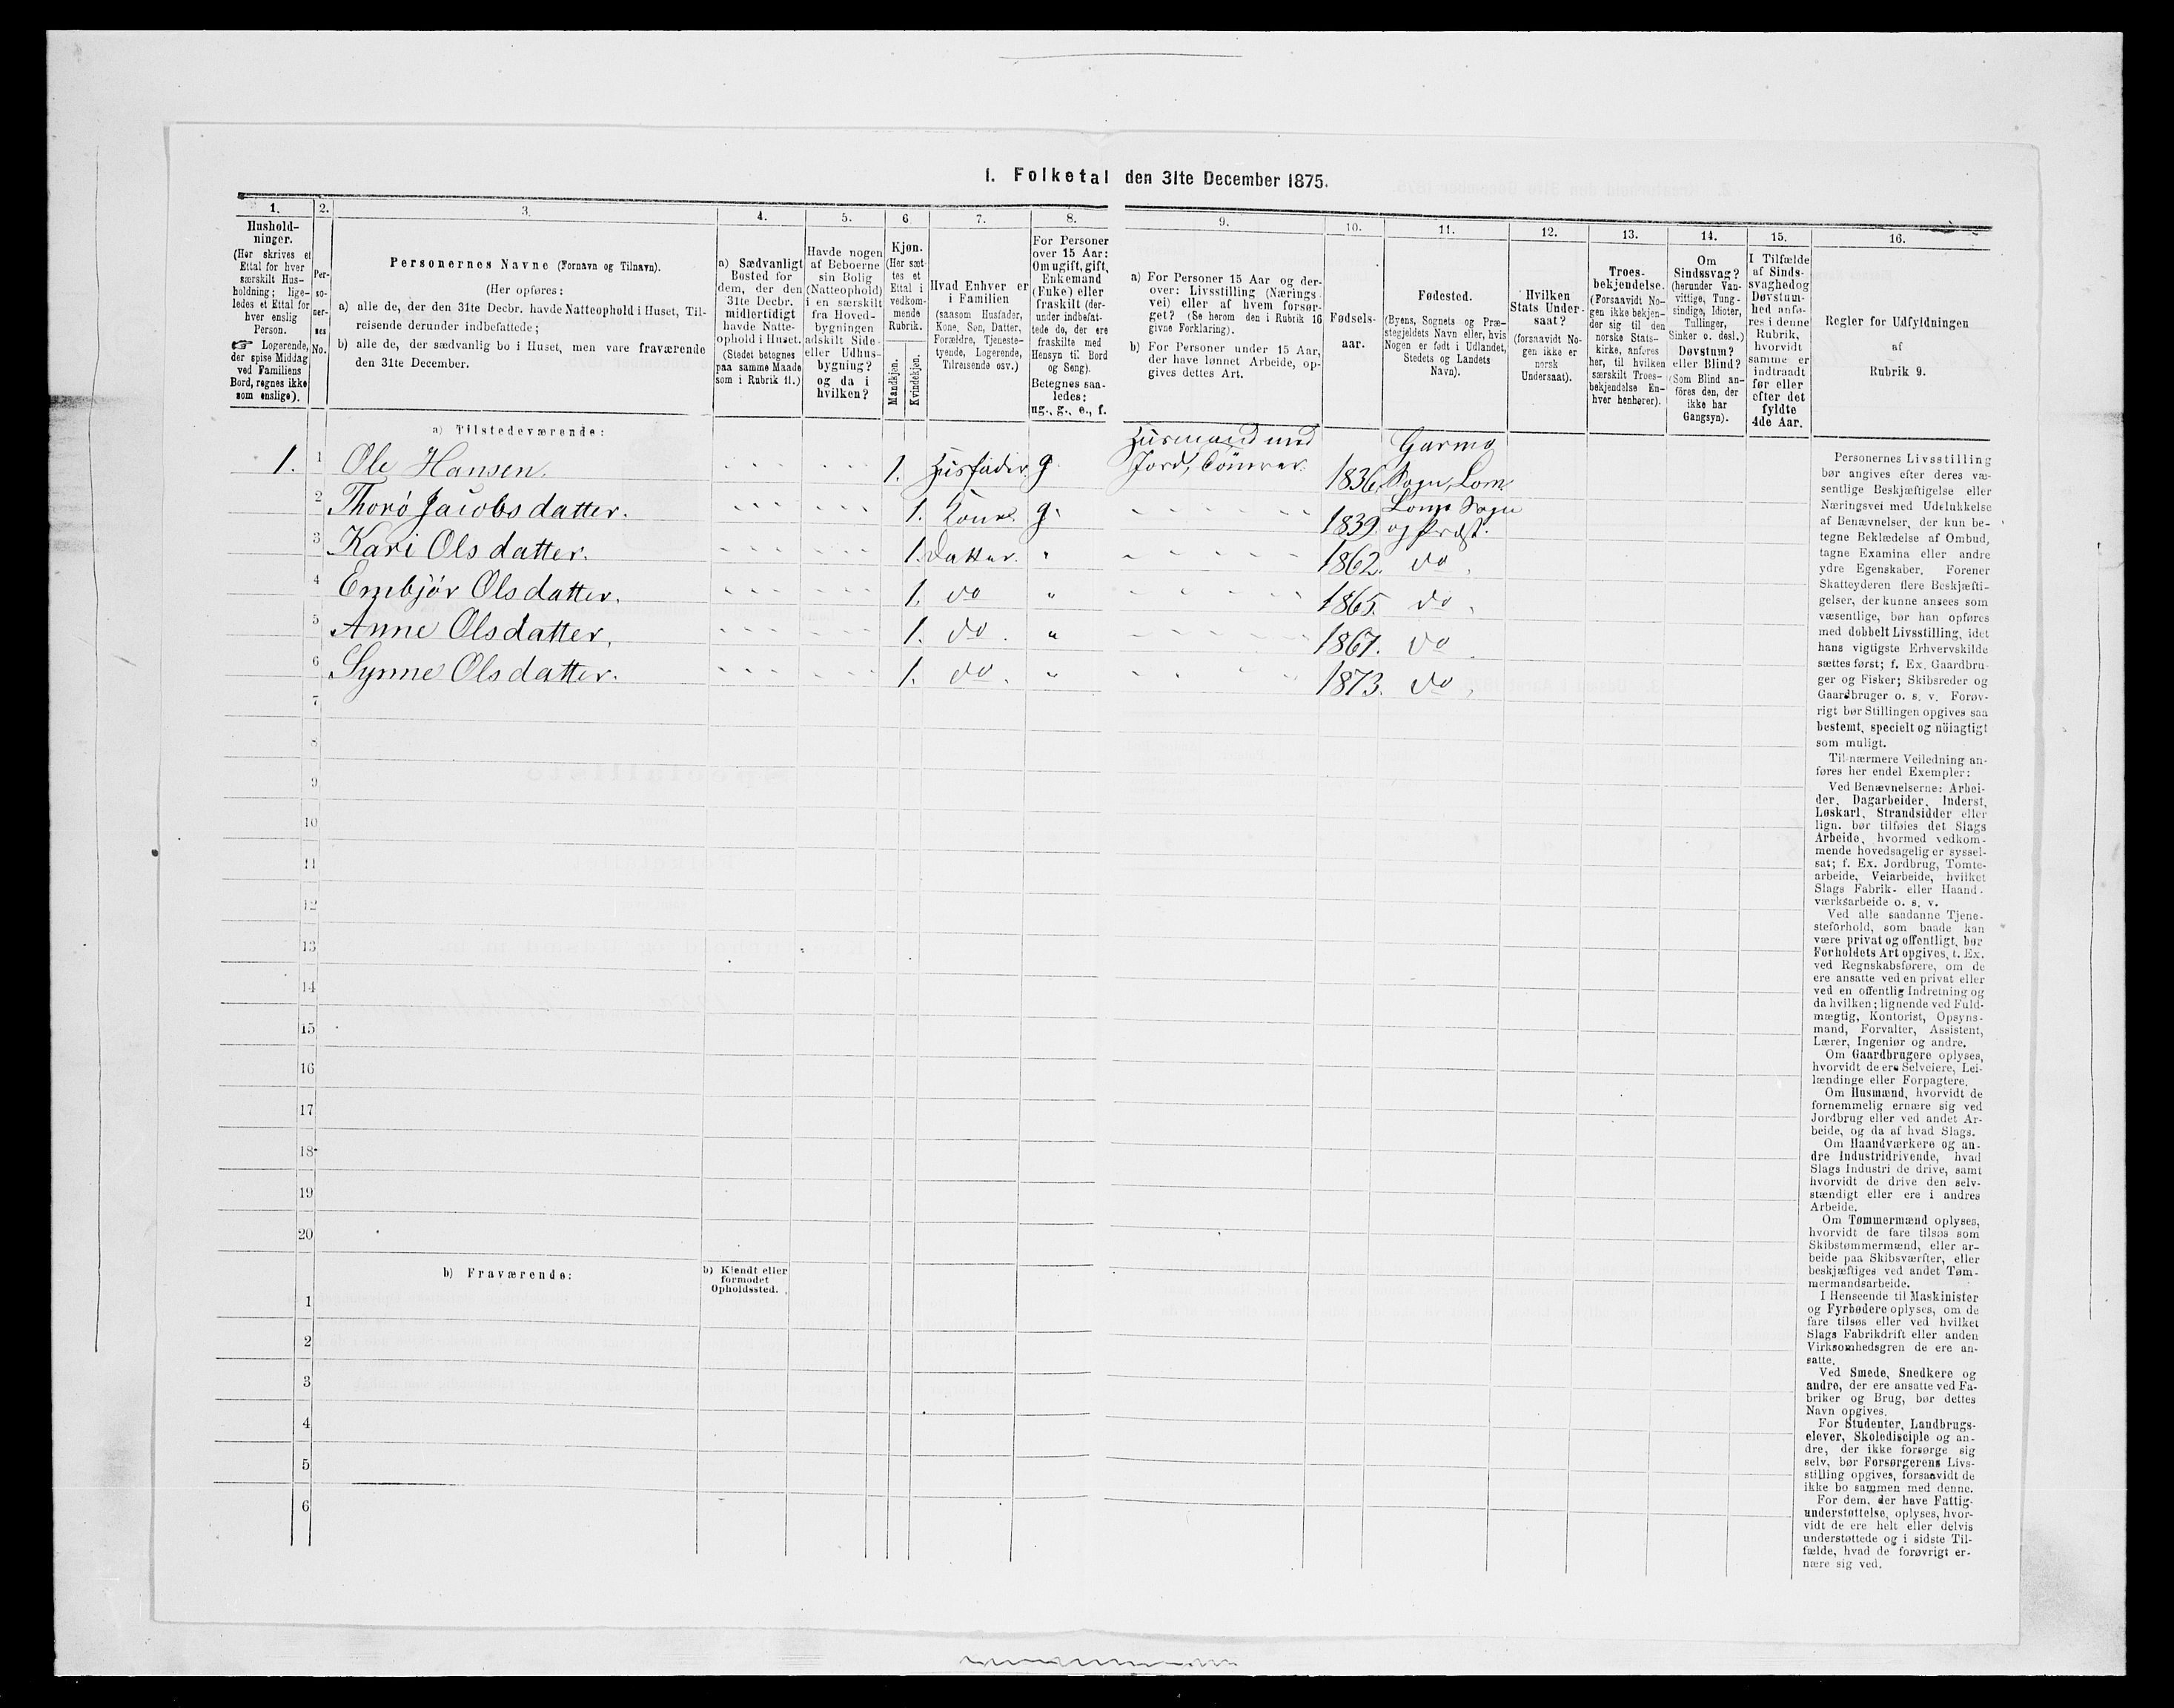 1. Folketal den 31te December 1875.
1.
Hushold-
ninger.
(Her skrives et
Ettal for hver
særskilt Hus-
holdning; lige-
ledes et Ettal for
hver enslig
Person.
☞ Logerende,
der spise Middag
ved Familiens
Bord, regnes ikke
som enslige).
2.
Per-
so-
ner-
nes
No.
3.
Personernes Navne (Fornavn og Tilnavn).
(Her opføres:
a) alle de, der den 31te Decbr. havde Natteophold i Huset, Til-
reisende derunder indbefattede;
b) alle de, der sædvanlig bo i Huset, men vare fraværende
den 31te December.
4.
a) Sædvanligt
Bosted for
dem, der den
31te Decbr.
midlertidigt
havde Natte-
ophold i Huset.
(Stedet betegnes
paa samme Maade
som i Rubrik 11.)
5.
Havde nogen
af Beboerne
sin Bolig
(Natteophold)
i en særskilt
fra Hoved-
bygningen
adskilt Side-
eller Udhus-
bygning?
og da i
hvilken?
6.
Kjøn.
(Her sæt-
tes et
Ettal i
vedkom-
mende
Rubrik.
Mandkjøn.
Kvindekjøn.
7.
Hvad Enhver er
i Familien
(saasom Husfader,
Kone, Søn, Datter,
Forældre, Tjeneste-
tyende, Logerende,
Tilreisende osv.)
8.
For Personer
over 15 Aar:
Om ugift, gift,
Enkemand
(Enke) eller
fraskilt (der-
under indbefat-
tede de, der ere
fraskilte med
Hensyn til Bord
og Seng).
Betegnes saa-
ledes:
ug., g., e., f.
9.
a) For Personer 15 Aar og der-
over: Livsstilling (Nærings-
vei) eller af hvem forsør-
get? (Se herom den i Rubrik 16
givne Forklaring).
b) For Personer under 15 Aar,
der have lønnet Arbeide, op-
gives dettes Art.
10.
Fødsels-
aar.
11.
Fødested.
(Byens, Sognets og Præ-
stegjeldets Navn eller, hvis
Nogen er født i Udlandet,
Stedets og Landets
Navn).
12.
Hvilken
Stats Under-
saat?
(forsaavidt No-
gen ikke er
norsk
Undersaat).
13.
Troes-
bekjendelse.
(Forsaavidt No-
gen ikke bekjen-
der sig til den
norske Stats-
kirke, anføres
her, til hvilken
særskilt Troes-
bekjendelse En-
hver henhører).
14.
Om
Sindssvag?
(herunder Van-
vittige, Tung-
sindige, Idioter,
Tullinger,
Sinker o. desl.)
Døvstum?
eller Blind?
(Som Blind an-
føres den, der
ikke har
Gangsyn).
15.
I Tilfælde
af Sinds-
svaghed og
Døvstum-
hed anfø-
res i denne
Rubrik,
hvorvidt
samme er
indtraadt
før eller
efter det
fyldte
4de Aar.
16.
Regler for Udfyldningen
af
Rubrik 9.
a) Tilstedeværende:
1. 1 Ole Hansen. 1. Husfader. g. Husmand med Jord, Tömrer. 1836. Garmo Sogn, Lom
2 Thorø Jacobsdatter. 1. Kone. g. 1839. Loms Sogn og Præst.
3 Kari Olsdatter. 1. Datter. " 1862. do
4 Embjør Olsdatter. 1. do " 1865. do
5 Anne Olsdatter. 1. do. " 1867. do
6 Synne Olsdatter. 1. do. " 1873. do
7
8
9
10
11
12
13
14
15
16
17
18
19
20
b) Fraværende:
b) Kjendt eller
formodet
Opholdssted.
1
2
3
4
5
6
Personernes Livsstilling
bør angives efter deres væ-
sentlige Beskjæftigelse eller
Næringsvei med Udelukkelse
af Benævnelser, der kun be-
tegne Beklædelse af Ombud,
tagne Examina eller andre
ydre Egenskaber. Forener
Skatteyderen flere Beskjæfti-
gelser, der kunne ansees som
væsentlige, bør han opføres
med dobbelt Livsstilling, idet
hans vigtigste Erhvervskilde
sættes først; f. Ex. Gaardbru-
ger og Fisker; Skibsreder og
Gaardbruger o. s. v. Forøv-
rigt bør Stillingen opgives saa
bestemt, specielt og nöiagtigt
som muligt.
Til nærmere Veiledning an-
føres her endel Exempler:
Ved Benævnelserne: Arbei-
der, Dagarbeider, Inderst,
Løskarl, Strandsidder eller
lign. bør tilføies det Slags
Arbeide, hvormed vedkom-
mende hovedsagelig er syssel-
sat; f. Ex. Jordbrug, Tomte-
arbeide, Veiarbeide, hvilket
Slags Fabrik- eller Haand-
værksarbeide o. s. v.
Ved alle saadanne Tjene-
steforhold, som baade kan
være privat og offentligt, bør
Forholdets Art opgives, f. Ex.
ved Regnskabsførere, om de
ere ansatte ved en privat eller
ved en offentlig Indretning og
da hvilken; lignende ved Fuld-
mægtig, Kontorist, Opsyns-
mand, Forvalter, Assistent,
Lærer, Ingeniør og andre.
Om Gaardbrugere oplyses,
hvorvidt de ere Selveiere, Lei-
lændinge eller Forpagtere.
Om Husmænd, hvorvidt de
fornemmelig ernære sig ved
Jordbrug eller ved andet Ar-
beide, og da af hvad Slags.
Om Haandværkere og an-
dre Industridrivende, hvad
Slags Industri de drive, samt
hvorvidt de drive den selv-
stændigt eller ere i andres
Arbeide.
Om Tømmermænd oplyses,
hvorvidt de fare tilsøs som
Skibstømmermænd, eller ar-
beide paa Skibsværfter, eller
beskjæftiges ved andet Tøm-
mermandsarbeide.
I Henseende til Maskinister
og Fyrbødere oplyses, om de
fare tilsøs eller ved hvilket
Slags Fabrikdrift eller anden
Virksomhedsgren de ere an-
satte.
Ved Smede, Snedkere og
andre, der ere ansatte ved Fa-
briker og Brug, bør dettes
Navn opgives.
For Studenter, Landbrugs-
elever, Skoledisciple og an-
dre, der ikke forsørge sig
selv, bør Forsørgerens Livs-
stilling opgives, forsaavidt de
ikke bo sammen med denne.
For dem, der have Fattig-
understøttelse, oplyses, hvor-
vidt de ere helt eller delvis
understøttede og i sidste Til-
fælde, hvad de forøvrigt er-
nære sig ved.